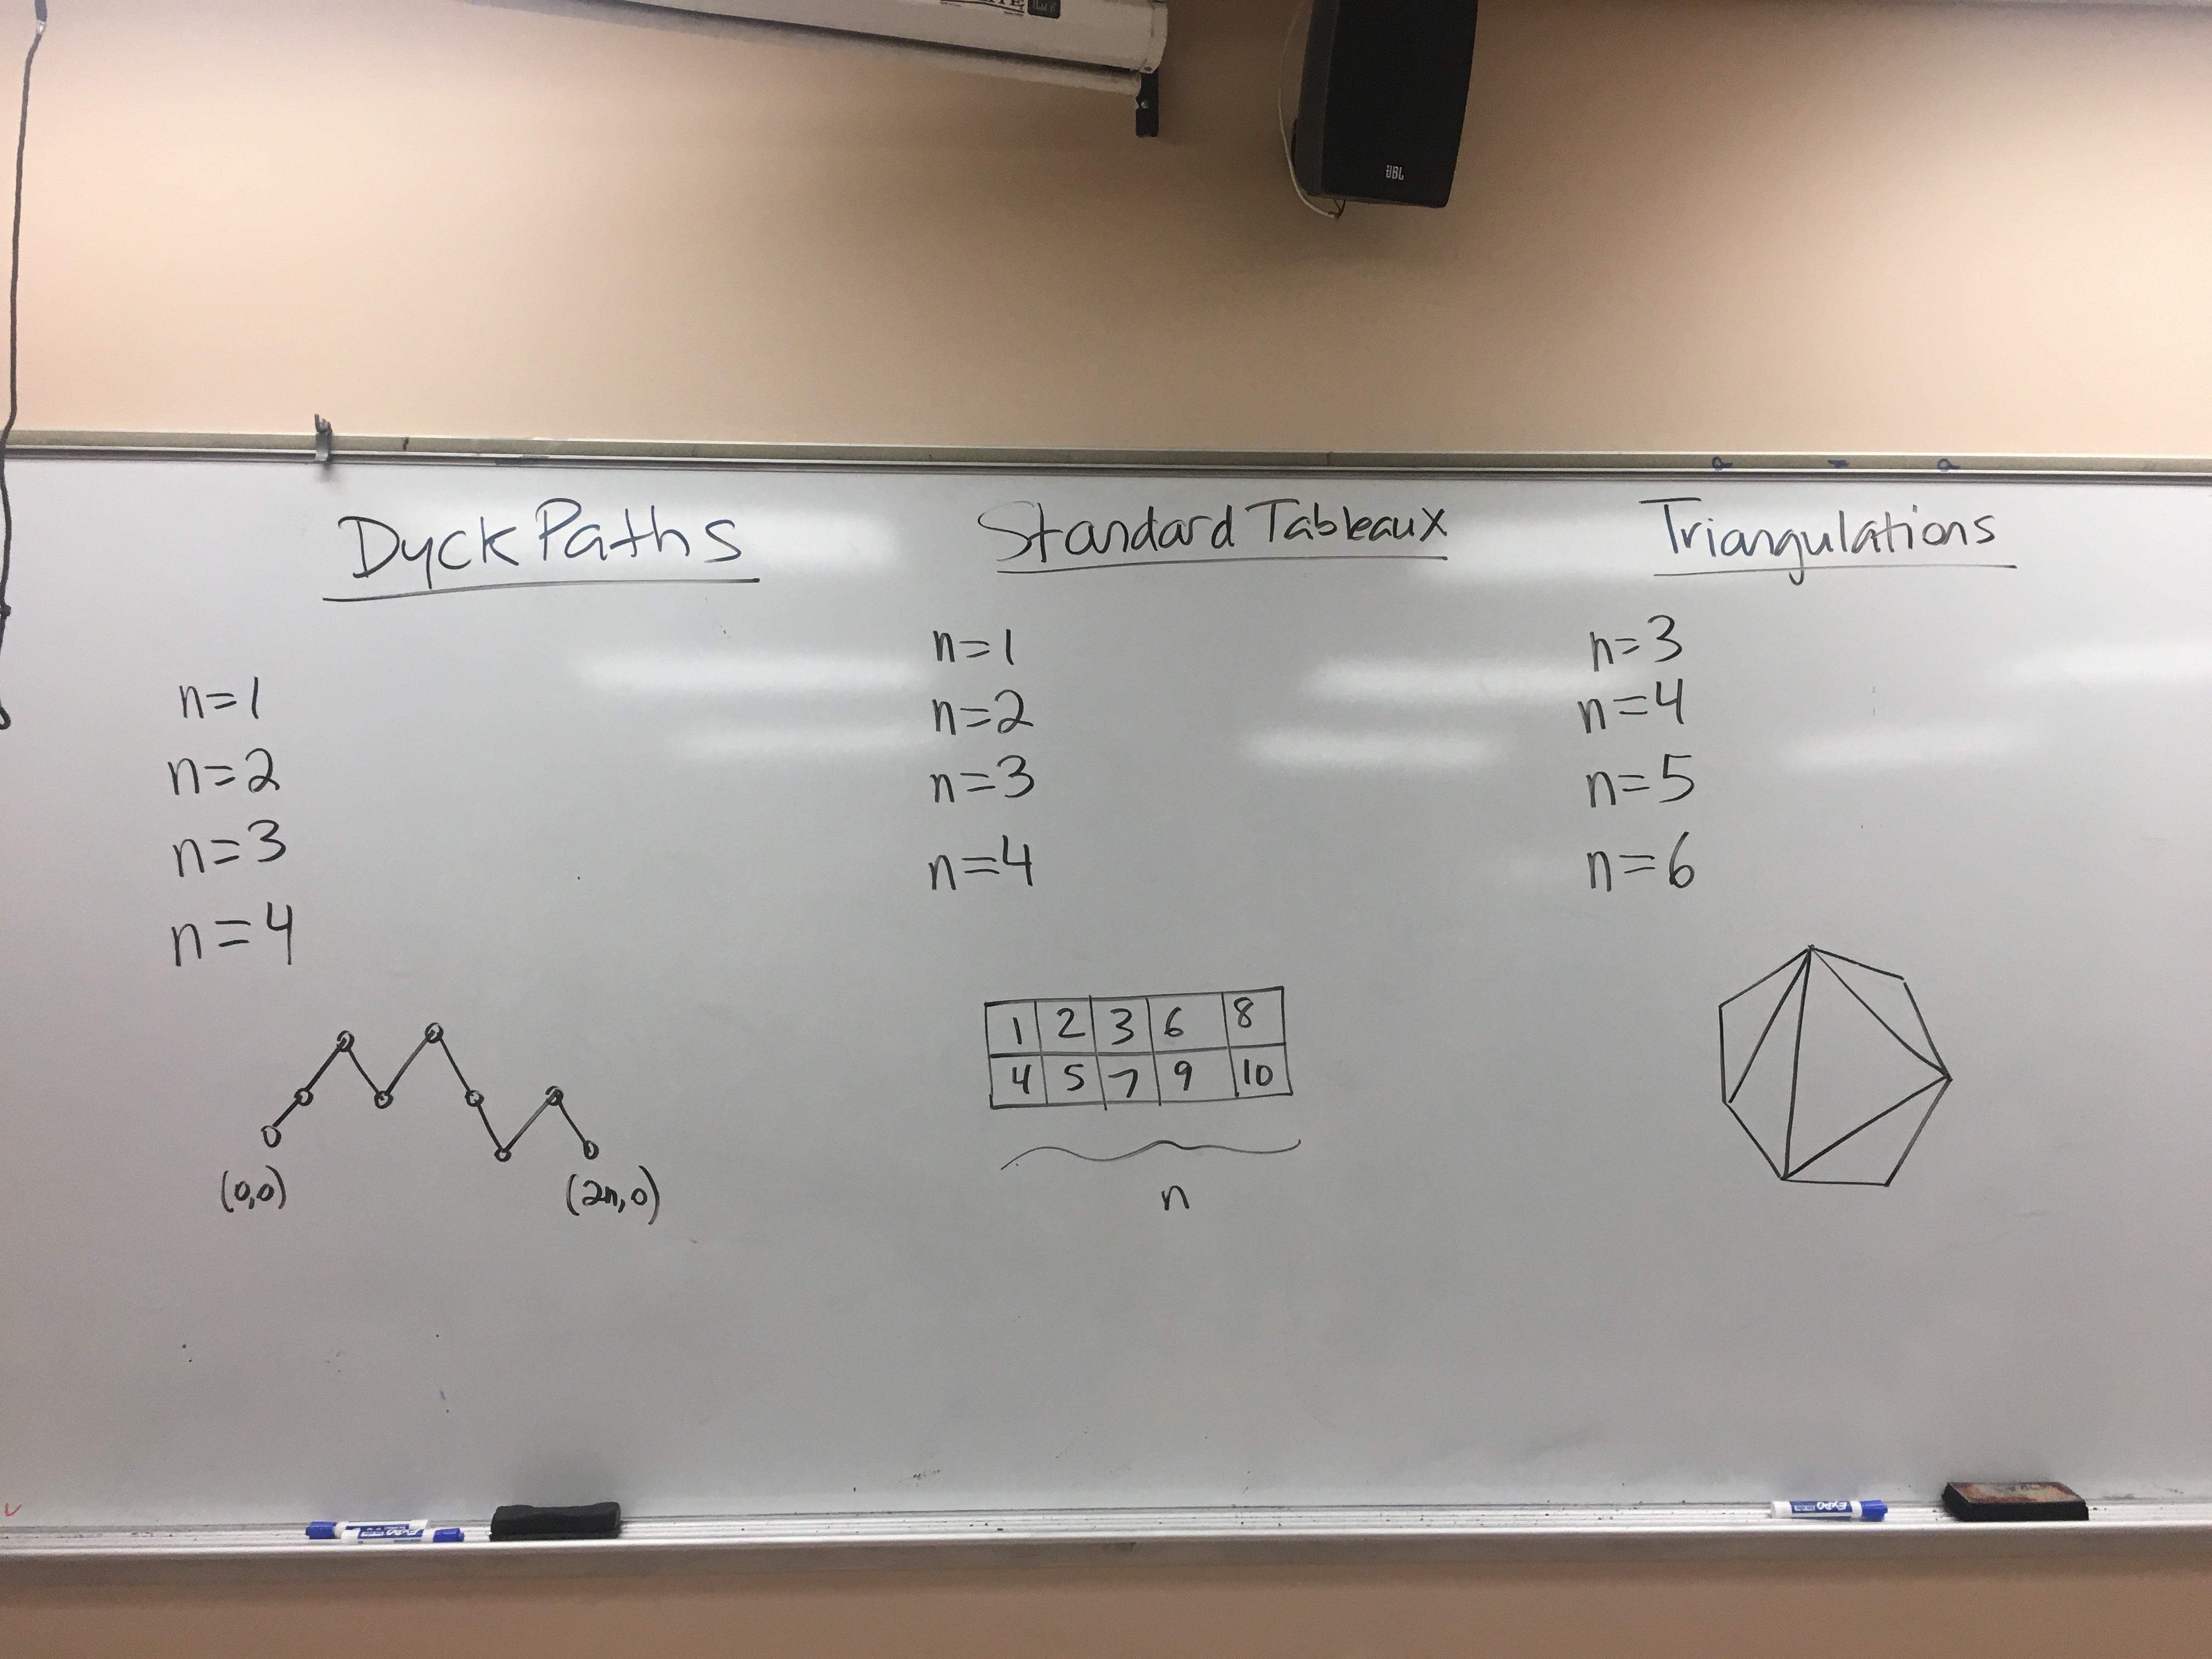 JBL
Dyck Paths
n=1
n=2
n=3
n=4
(0,0)
(2n,0)
Standard Tableaux
n=1
n=2
n=3
n=4
1 2 3 6 8
4 5 7 9 10
n
Triangulations
n=3
n=4
n=5
n=6
EXPO